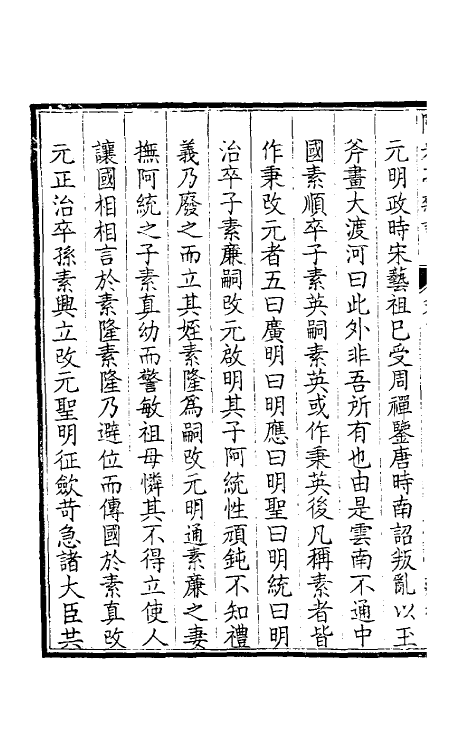 元明政時宋藝祖已受周禪鑒唐時南詔叛亂以玉
斧畫大渡河曰此外非吾所有也由是雲南不通中
國素順卒子素英嗣素英或作秉英後凡稱素者皆
作秉改元者五曰廣明曰明應曰明聖曰明統曰明
治卒子素廉嗣改元啟明其子阿統性頑鈍不知禮
義乃廢之而立其姪素隆爲嗣改元明通素廉之妻
撫阿統之子素真幼而警敏祖母憐其不得立使人
讓國相相言於素隆素隆乃避位而傳國於素真改
元正治卒孫素興立改元聖明征斂苛急諸大臣共